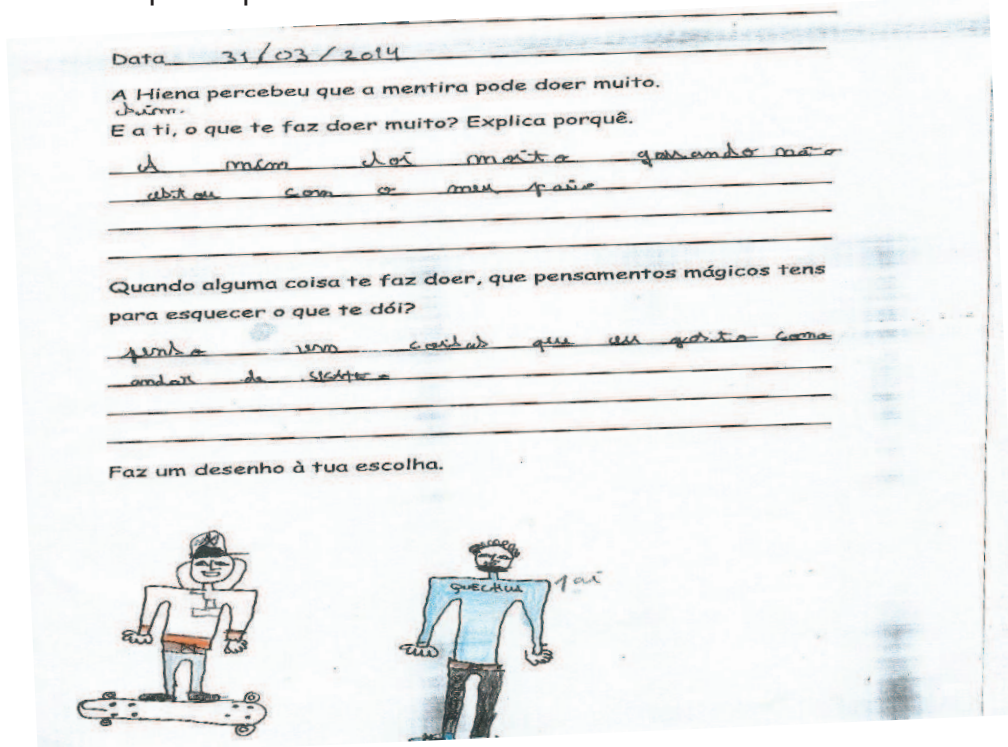 Data 31/03/2014
A Hiena percebeu que a mentira pode doer muito.
Sim.
E a ti, o que te faz doer muito? Explica porquê.
A mim doi moito quando não
estou com o meu paie
Quando alguma coisa te faz doer, que pensamentos mágicos tens
para esquecer o que te dói?
penso em coisas que eu gosto como
andar de skate
Faz um desenho à tua escolha.
QUECHUA
pai